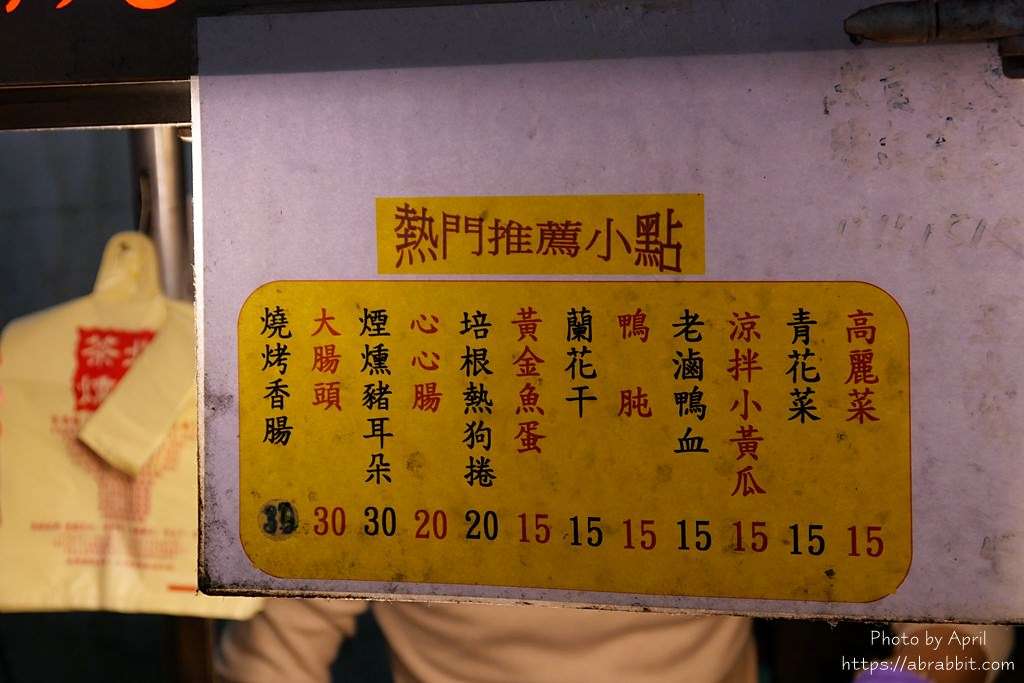 熱門推薦小點
高麗菜 15
青花菜 15
涼拌小黃瓜 15
老滷鴨血 15
鴨肫 15
蘭花干 15
黃金魚蛋 15
培根熱狗捲 20
心心腸 20
煙燻豬耳朵 30
大腸頭 30
燒烤香腸
茶
Photo by April
https://abrabbit.com